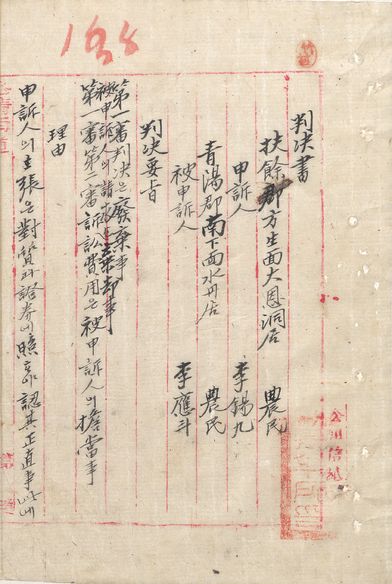 168
判決書
扶餘郡方生面大恩洞居 農民
申訴人 李錫九
青陽郡南下面水丹居 農民
被申訴人 李應斗
判決要旨
第一審判決은廢棄事
被申訴人의請求 却事
第一審第二審訴訟費用은被申訴人의擔當事
理由
申訴人의主張은對質과證券에照 認其正直事